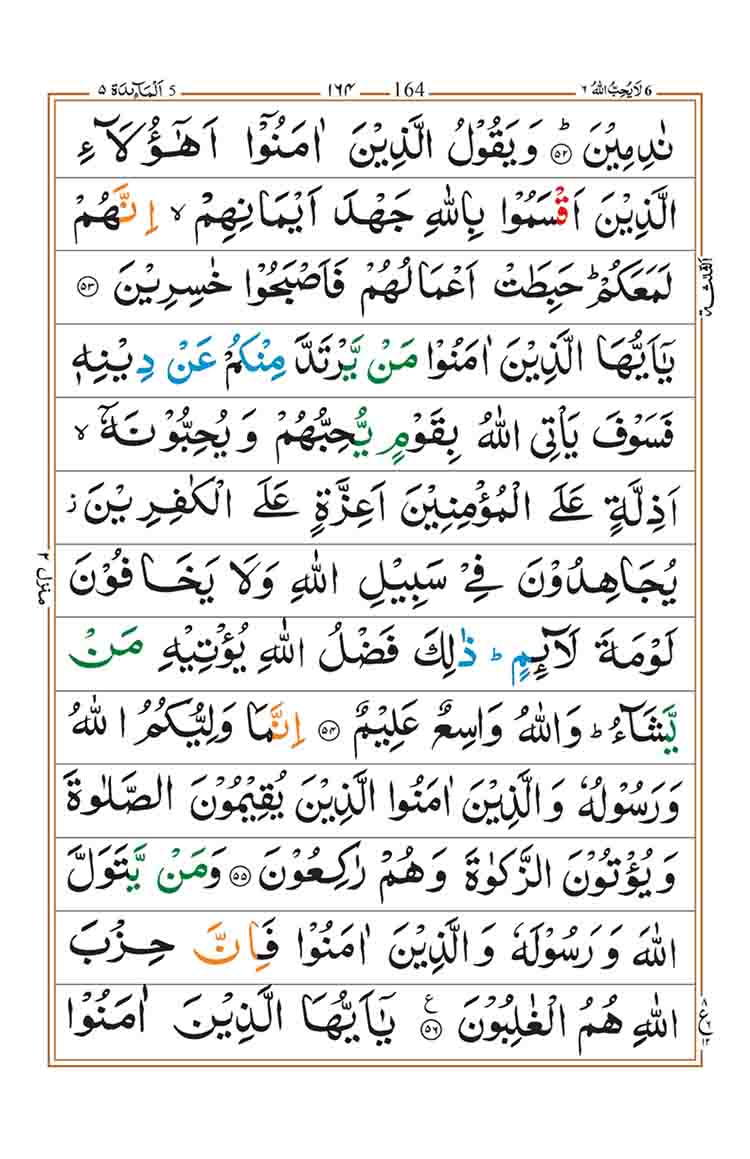 6 لَا يُحِبُّ اللّٰهُ ٦ 164 ١٦٤ 5 اَلْمَآئِدَة ٥
نٰدِمِيْنَ ؕ ﴿۵۲﴾ وَيَقُوْلُ الَّذِيْنَ اٰمَنُوْۤا اَهٰۤؤُلَآءِ
الَّذِيْنَ اَقْسَمُوْا بِاللّٰهِ جَهْدَ اَيْمَانِهِمْ ۙ اِنَّهُمْ
لَمَعَكُمْ ؕ حَبِطَتْ اَعْمَالُهُمْ فَاَصْبَحُوْا خٰسِرِيْنَ ﴿۵۳﴾
الثلٰثة
يٰۤاَيُّهَا الَّذِيْنَ اٰمَنُوْا مَنْ يَّرْتَدَّ مِنْكُمْ عَنْ دِيْنِهٖ
فَسَوْفَ يَاْتِى اللّٰهُ بِقَوْمٍ يُّحِبُّهُمْ وَيُحِبُّوْنَهٗۤ ۙ
اَذِلَّةٍ عَلَى الْمُؤْمِنِيْنَ اَعِزَّةٍ عَلَى الْكٰفِرِيْنَ ز
يُجَاهِدُوْنَ فِىْ سَبِيْلِ اللّٰهِ وَلَا يَخَافُوْنَ
منزل ٢
لَوْمَةَ لَآئِمٍ ؕ ذٰلِكَ فَضْلُ اللّٰهِ يُؤْتِيْهِ مَنْ
يَّشَآءُ ؕ وَاللّٰهُ وَاسِعٌ عَلِيْمٌ ﴿۵۴﴾ اِنَّمَا وَلِيُّكُمُ اللّٰهُ
وَرَسُوْلُهٗ وَالَّذِيْنَ اٰمَنُوا الَّذِيْنَ يُقِيْمُوْنَ الصَّلٰوةَ
وَيُؤْتُوْنَ الزَّكٰوةَ وَهُمْ رٰكِعُوْنَ ﴿۵۵﴾ وَمَنْ يَّتَوَلَّ
اللّٰهَ وَرَسُوْلَهٗ وَالَّذِيْنَ اٰمَنُوْا فَاِنَّ حِزْبَ
اللّٰهِ هُمُ الْغٰلِبُوْنَ ﴿۵۶﴾ ع يٰۤاَيُّهَا الَّذِيْنَ اٰمَنُوْا
٨
ع
١٢